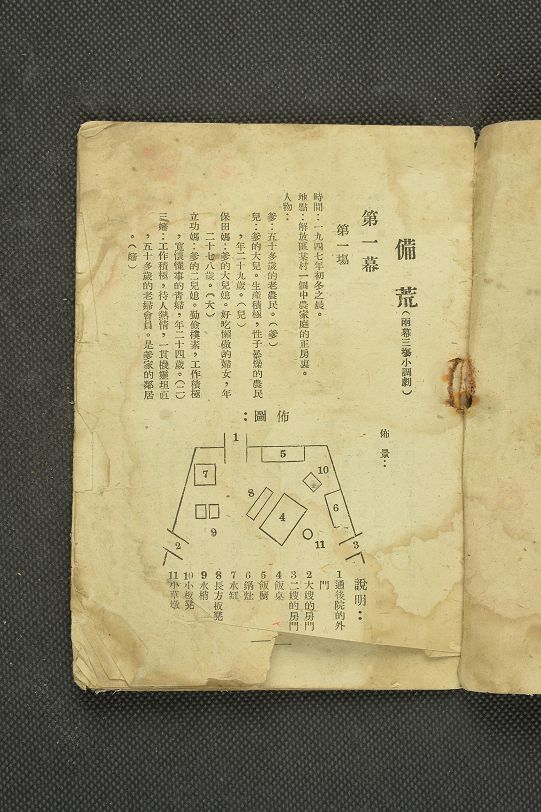 備荒(兩幕三場小調劇)
第一幕
第一場
時間:一九四七年初冬之晨。
地點:解放區某村一個中農家庭的正房裏。
人物:
爹:五十多歲的老農民。(爹)
兒:爹的大兒。生產積極,性子暴燥的農民
,年二十九歲。(兒)
保田媽:爹的大兒媳。好吃懶做的婦女,年
二十七八歲。(大)
立功媽:爹的二兒媳。勤儉樸素,工作積極
,賞懷懂事的青婦,年二十四歲。(二)
三嬸:工作積極,待人熱情,一貫機靈坦直
,五十多歲的老婦會員。是爹家的鄰居
。(嬸)
佈景:
佈圖:
1
2
3
4
5
6
7
8
9
10
11
說明:
1通後院的外
門
2大嫂的房門
3二嫂的房門
4飯桌
5飯櫥
6鍋灶
7水缸
8長方板凳
9水梢
10小板凳
11小草墩